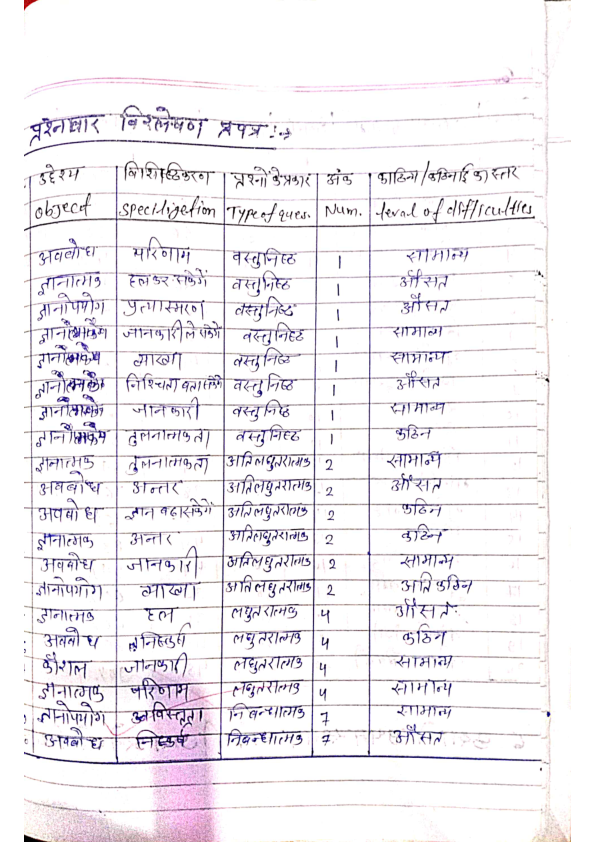 प्रश्नवार विश्लेषण प्रपत्र :-
उद्देश्य विशिष्टिकरण प्रश्नों के प्रकार अंक काठिन्य/कठिनाई का स्तर
object Type of ques. Num. leval of difficulties
अवबोध परिणाम वस्तुनिष्ठ 1 सामान्य
ज्ञानात्मक हल कर सकेंगे वस्तुनिष्ठ 1 औसत
ज्ञानोपयोग प्रत्यास्मरण वस्तुनिष्ठ 1 औसत
जानकारी ले सकेंगे वस्तुनिष्ठ 1 सामान्य
व्याख्या वस्तुनिष्ठ 1 सामान्य
निश्चितता बता सकेंगे वस्तुनिष्ठ 1 औसत
जानकारी वस्तुनिष्ठ 1 सामान्य
तुलनात्मकता वस्तुनिष्ठ 1 कठिन
ज्ञानात्मक तुलनात्मकता अतिलघुतरात्मक 2 सामान्य
अवबोध अन्तर अतिलघुतरात्मक 2 औसत
अवबोध ज्ञान बढ़ा सकेंगें अतिलघुतरात्मक 2 कठिन
ज्ञानात्मक अन्तर अतिलघुतरात्मक 2 कठिन
अवबोध जानकारी अतिलघुतरात्मक 2 सामान्य
ज्ञानोपयोग व्याख्या अतिलघुतरात्मक 2 अति कठिन
ज्ञानात्मक हल लघुतरात्मक 4 औसत
अवबोध निष्कर्ष लघुतरात्मक 4 कठिन
कौशल जानकारी लघुतरात्मक 4 सामान्य
ज्ञानात्मक परिणाम लघुतरात्मक 4 सामान्य
ज्ञानोपयोग निबन्धात्मक 7 सामान्य
अवबोध निष्कर्ष निबन्धात्मक 7 औसत